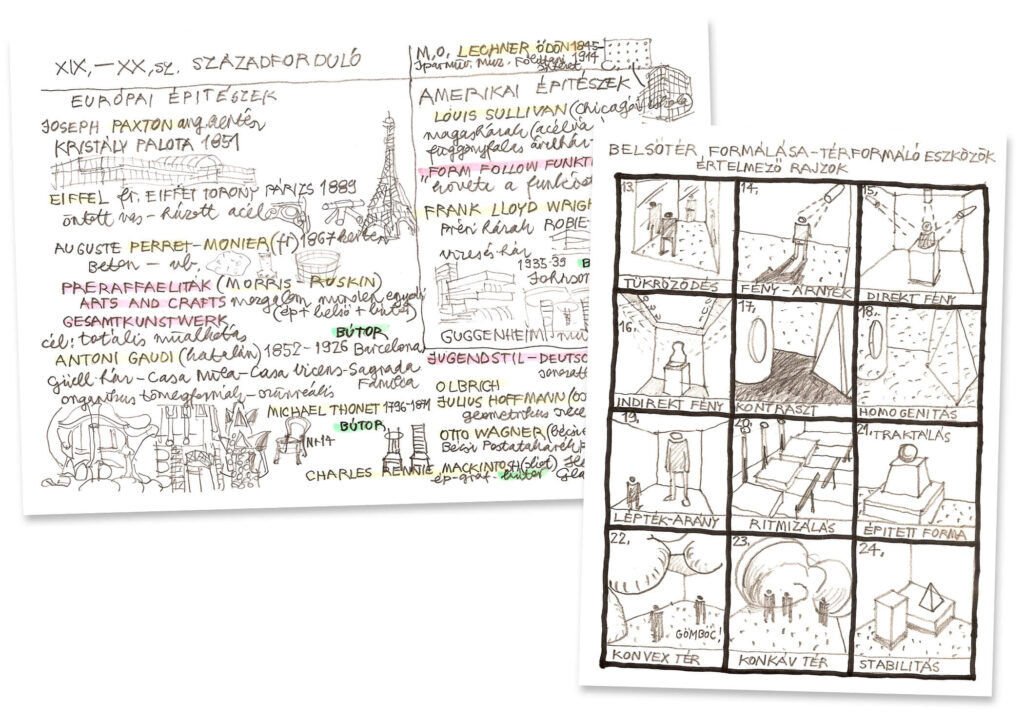 XIX,-XX,SZ. SZÁZADFORDULÓ
EURÓPAI ÉPÍTÉSZEK
JOSEPH PAXTON ang. kertész
KRISTÁLY PALOTA 1851
EIFFEL fr. EIFFEL TORONY PÁRIZS 1889
öntött vas - húzott acél
AUGUSTE PERRET-MONIER (fr) 1867 kertész
Beton - vb.
PRERAFFAELITÁK (MORRIS-RUSKIN)
ARTS AND CRAFTS mozgalom minden egyedi
GESAMTKUNSTWERK (ép + belső + bútor)
cél: totális műalkotás
BÚTOR
ANTONI GAUDI (katalán) 1852-1926 Barcelona
Güell ház - Casa Mila - Casa Vicens - Sagrada
Familia
organikus tömegformák - szürreális
MICHAEL THONET 1796-1871
BÚTOR
Nr.14
CHARLES RENNIE MACKINTOSH (skót)
ép-gráf- bútor
M.O. LECHNER ÖDÖN 1845-
1914
Iparműv. Múz. Földtani
AMERIKAI ÉPÍTÉSZEK
LOUIS SULLIVAN (chicagói iskola
magasházak
függönyfalas
"FORM FOLLOW FUNKT
követe a
FRANK LLOYD WRIGH
Préri házak ROBIE
vízesés ház
1935-39
Johnson
GUGGENHEIM
JUGENDSTIL-DEUTSC
OLBRICH
JULIUS HOFFMANN
geometrikus
OTTO WAGNER (bécsi
Bécsi Postatakarék
BELSŐTÉR FORMÁLÁSA-TÉRFORMÁLÓ ESZKÖZÖK
ÉRTELMEZŐ RAJZOK
13,
TÜKRÖZŐDÉS
14,
FÉNY-ÁRNYÉK
15,
DIREKT FÉNY
16,
INDIREKT FÉNY
17,
KONTRASZT
18,
HOMOGENITÁS
19,
LÉPTÉK-ARÁNY
20,
RITMIZÁLÁS
21, TRAKTÁLÁS
ÉPÍTETT FORMA
22,
GÖMBÖC!
KONVEX TÉR
23,
KONKÁV TÉR
24,
STABILITÁS